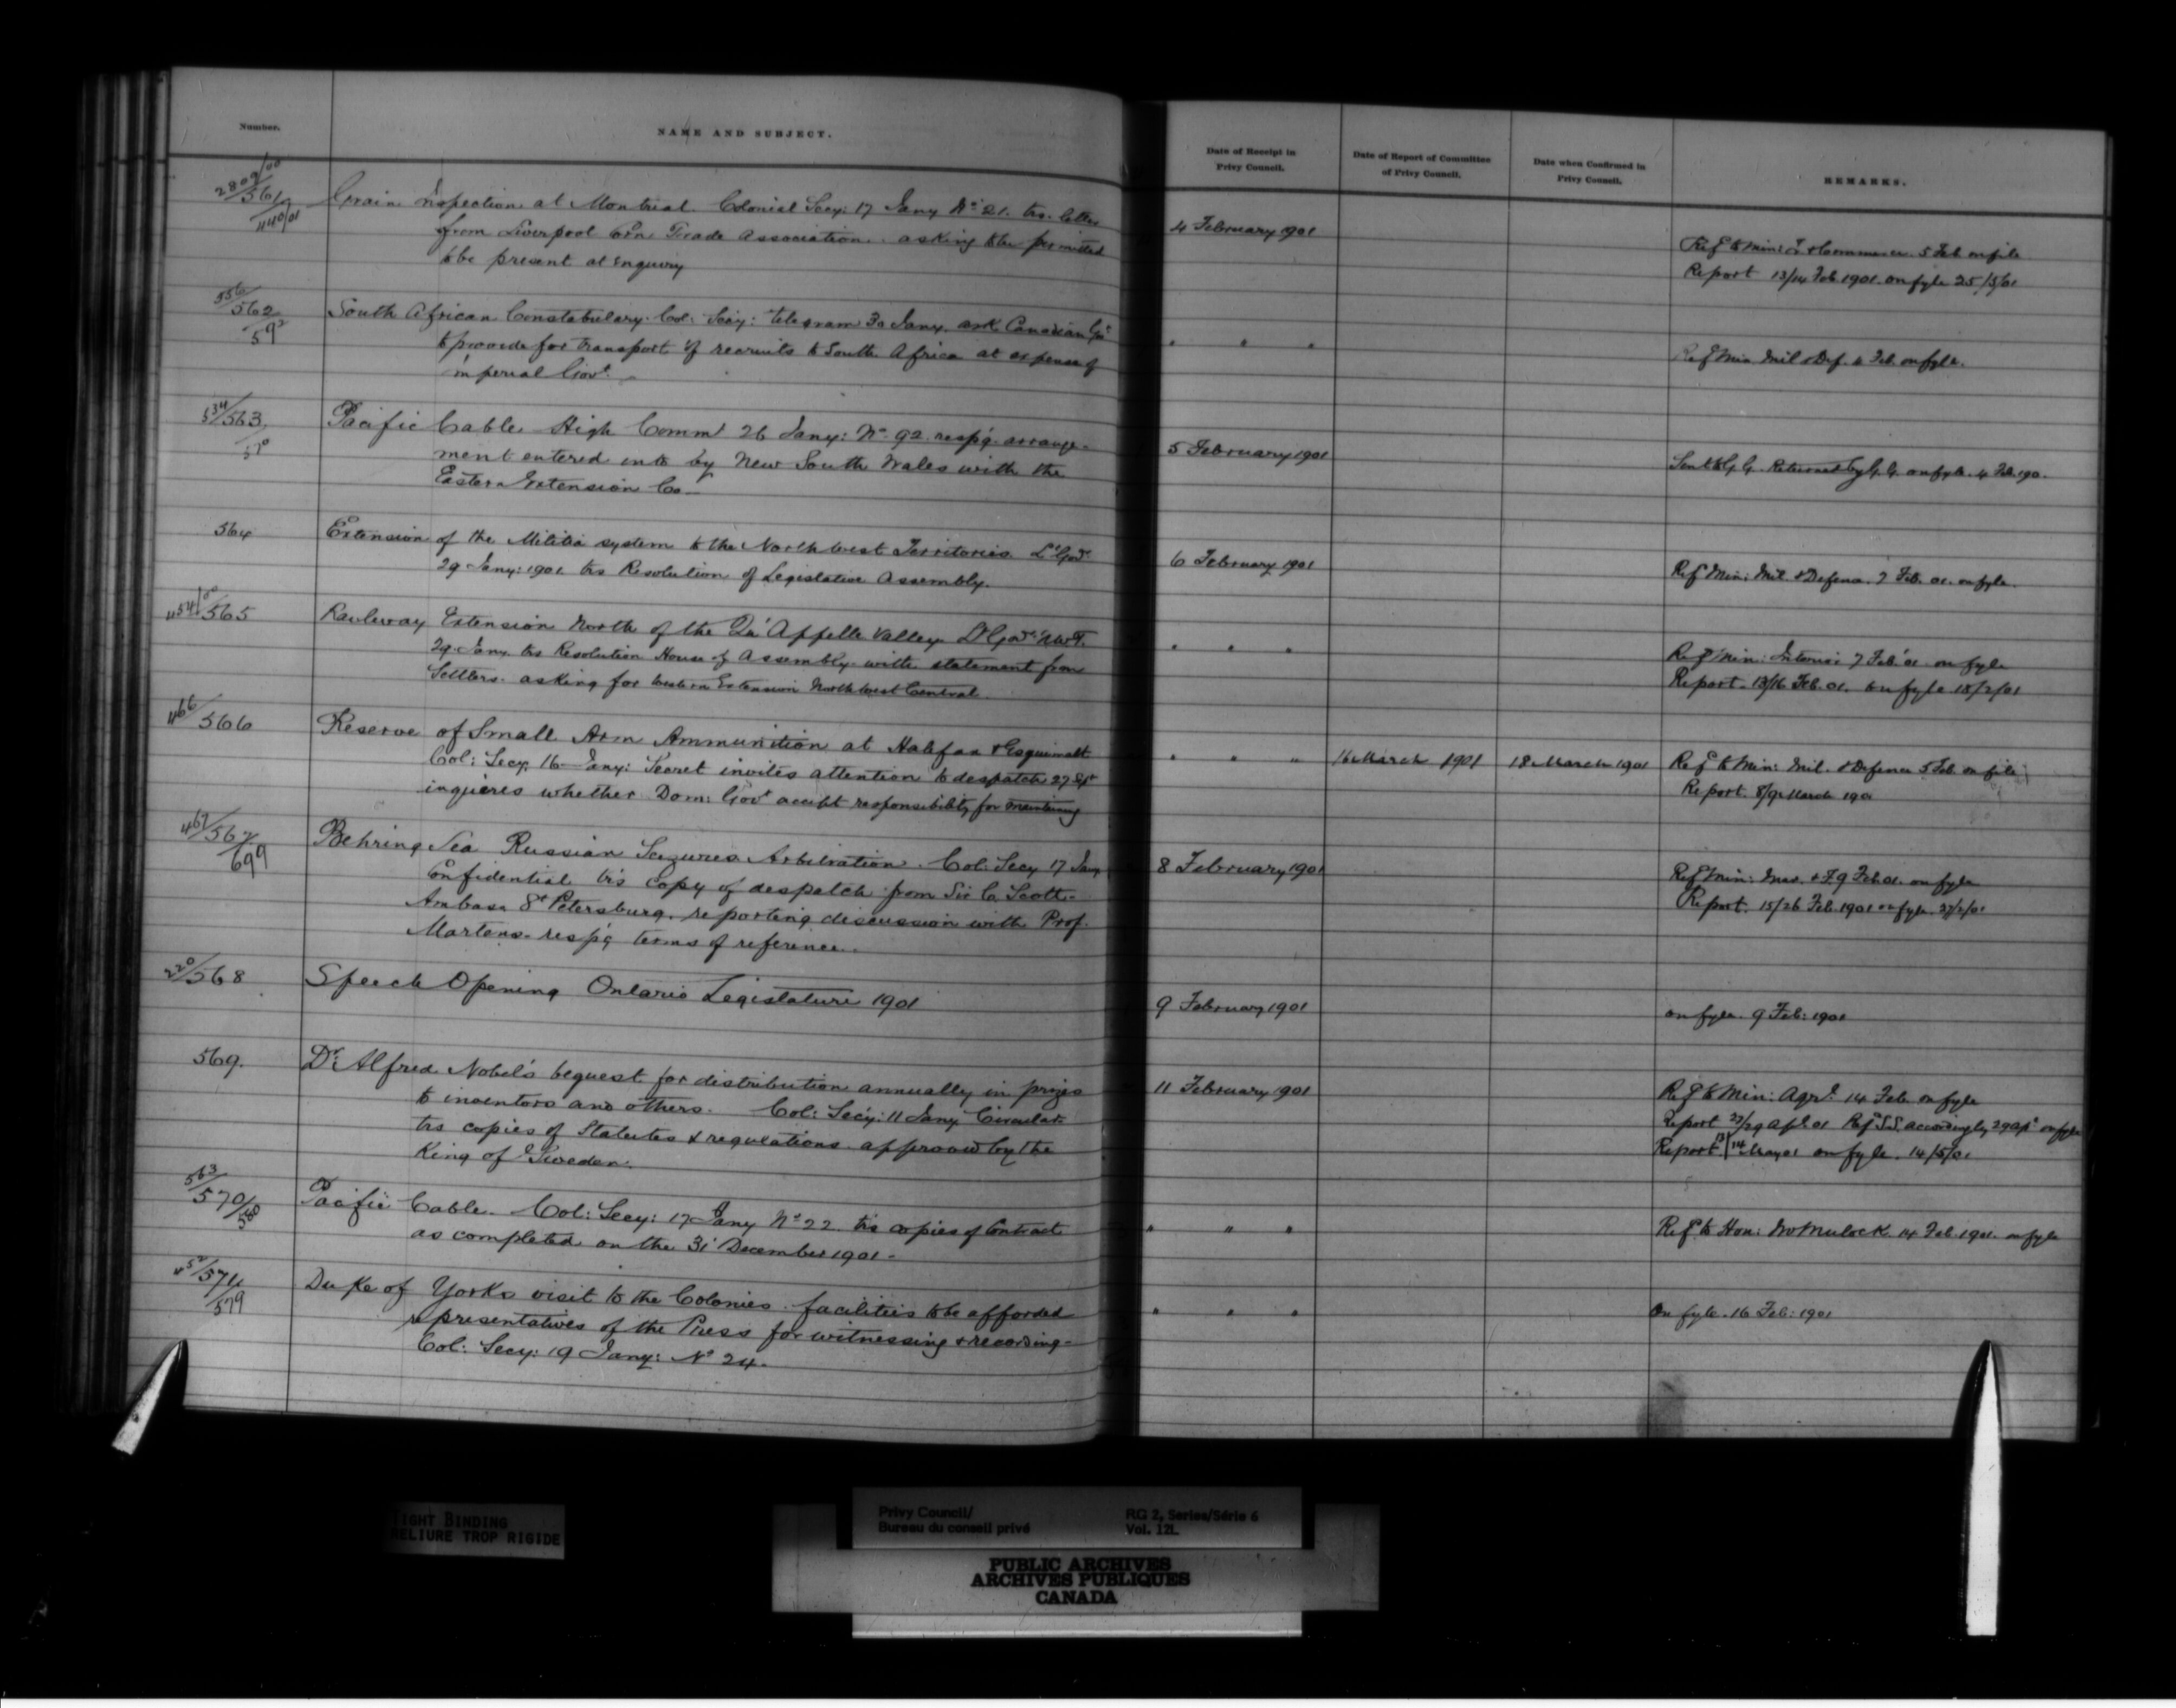 Number.
NAME AND SUBJECT.
Date of Receipt in
Privy Council.
Date of Report of Committee
of Privy Council.
Date when Confirmed in
Privy Council.
REMARKS.
2809/00
561
1140/01
Grain Inspection at Montreal. Colonial Secy: 17 Jany No 21. trs. letter
from Liverpool Corn Trade Association. asking to be permitted
to be present at Enquiry
4 February 1901
Ref to Min: T & Commerce. 5 Feb on file
Report 13/14 Feb. 1901. on fyle 25/5/01
556/
562
/592
South African Constabulary. Col: Secy: telegram 30 Jany. ask Canadian Govt
to provide for transport of recruits to South Africa at expense of
imperial Govt.
" " "
Ref Min Mil & Def. 4 Feb. on fyle.
534/563
/570
Pacific Cable High Commr 26 Jany: No. 92. resp'g. arrange-
ment entered into by New South Wales with the
Eastern Extension Co—
5 February 1901
Sent to G. G. Returned by G. G. on fyle. 4 Feb. 190.
564
Extension of the Militia system to the North West Territories. Lt Govr.
29 Jany: 1901. trs Resolution of Legislative Assembly.
6 February 1901
Ref Min: Mil & Defence. 7 Feb. 01. on fyle.
454/00 565
Railway Extension North of the Qu'Appelle Valley. Lt Govr: NWT.
29. Jany trs Resolution House of Assembly with statement from
Settlers. asking for Western Extension North West Central.
" " "
Ref Min: Interior 7 Feb '01 on fyle
Report. 13/16 Feb. 01. on fyle 18/2/01
466/
566
Reserve of Small Arm Ammunition at Halifax & Esquimalt
Col: Secy. 16— Jany: Secret invites attention to despatch 27 Spt
inquires whether Dom: Govt accept responsibility for maintaing
" " "
16 March 1901
18 March 1901
Ref to Min: Mil. & Defence 5 Feb. on file
Report. 8/9 March 190
467/567
/699
Behring Sea Russian Seizures Arbitration. Col: Secy 17 Jany
Confidential trs Copy of despatch from Sir C. Scott-
Ambass St Petersburg. reporting discussion with Prof.
Martens. resp'g terms of reference.
8 February 1901
Ref Min: Mar. & F. 9 Feb 01. on fyle
Report. 15/26 Feb. 1901 on fyle. 27/2/01
220/568
Speech Opening Ontario Legislature 1901
9 February 1901
on fyle. 9 Feb: 1901
569.
Dr: Alfred Nobel's bequest for distribution annually in prizes
to inventors and others. Col: Secy: 11 Jany Circular.
trs copies of Statutes & regulations approved by the
King of Sweden.
11 February 1901
Ref to Min: Agr. 14 Feb. on fyle
Report 27/29 Apl 01 Ref S.S. accordingly 29 Apl on fyle
Report 13/14 May 01 on fyle. 14/5/01
563/
570/
580
Pacific Cable. Col: Secy: 17 Jany No 22 trs copies of Contract
as completed on the 31 December 1901.
" " "
Ref to Hon: Wm Mulock. 14 Feb. 1901. on fyle
452/571
/579
Duke of York's visit to the Colonies. facilities to be afforded
representatives of the Press for witnessing & recording-
Col: Secy: 19 Jany: No 24.
" " "
On fyle. 16 Feb: 1901
IGHT BINDING
RELIURE TROP RIGIDE
Privy Council/
Bureau du conseil privé
RG 2, Series/Série 6
Vol. 12L
PUBLIC ARCHIVES
ARCHIVES PUBLIQUES
CANADA